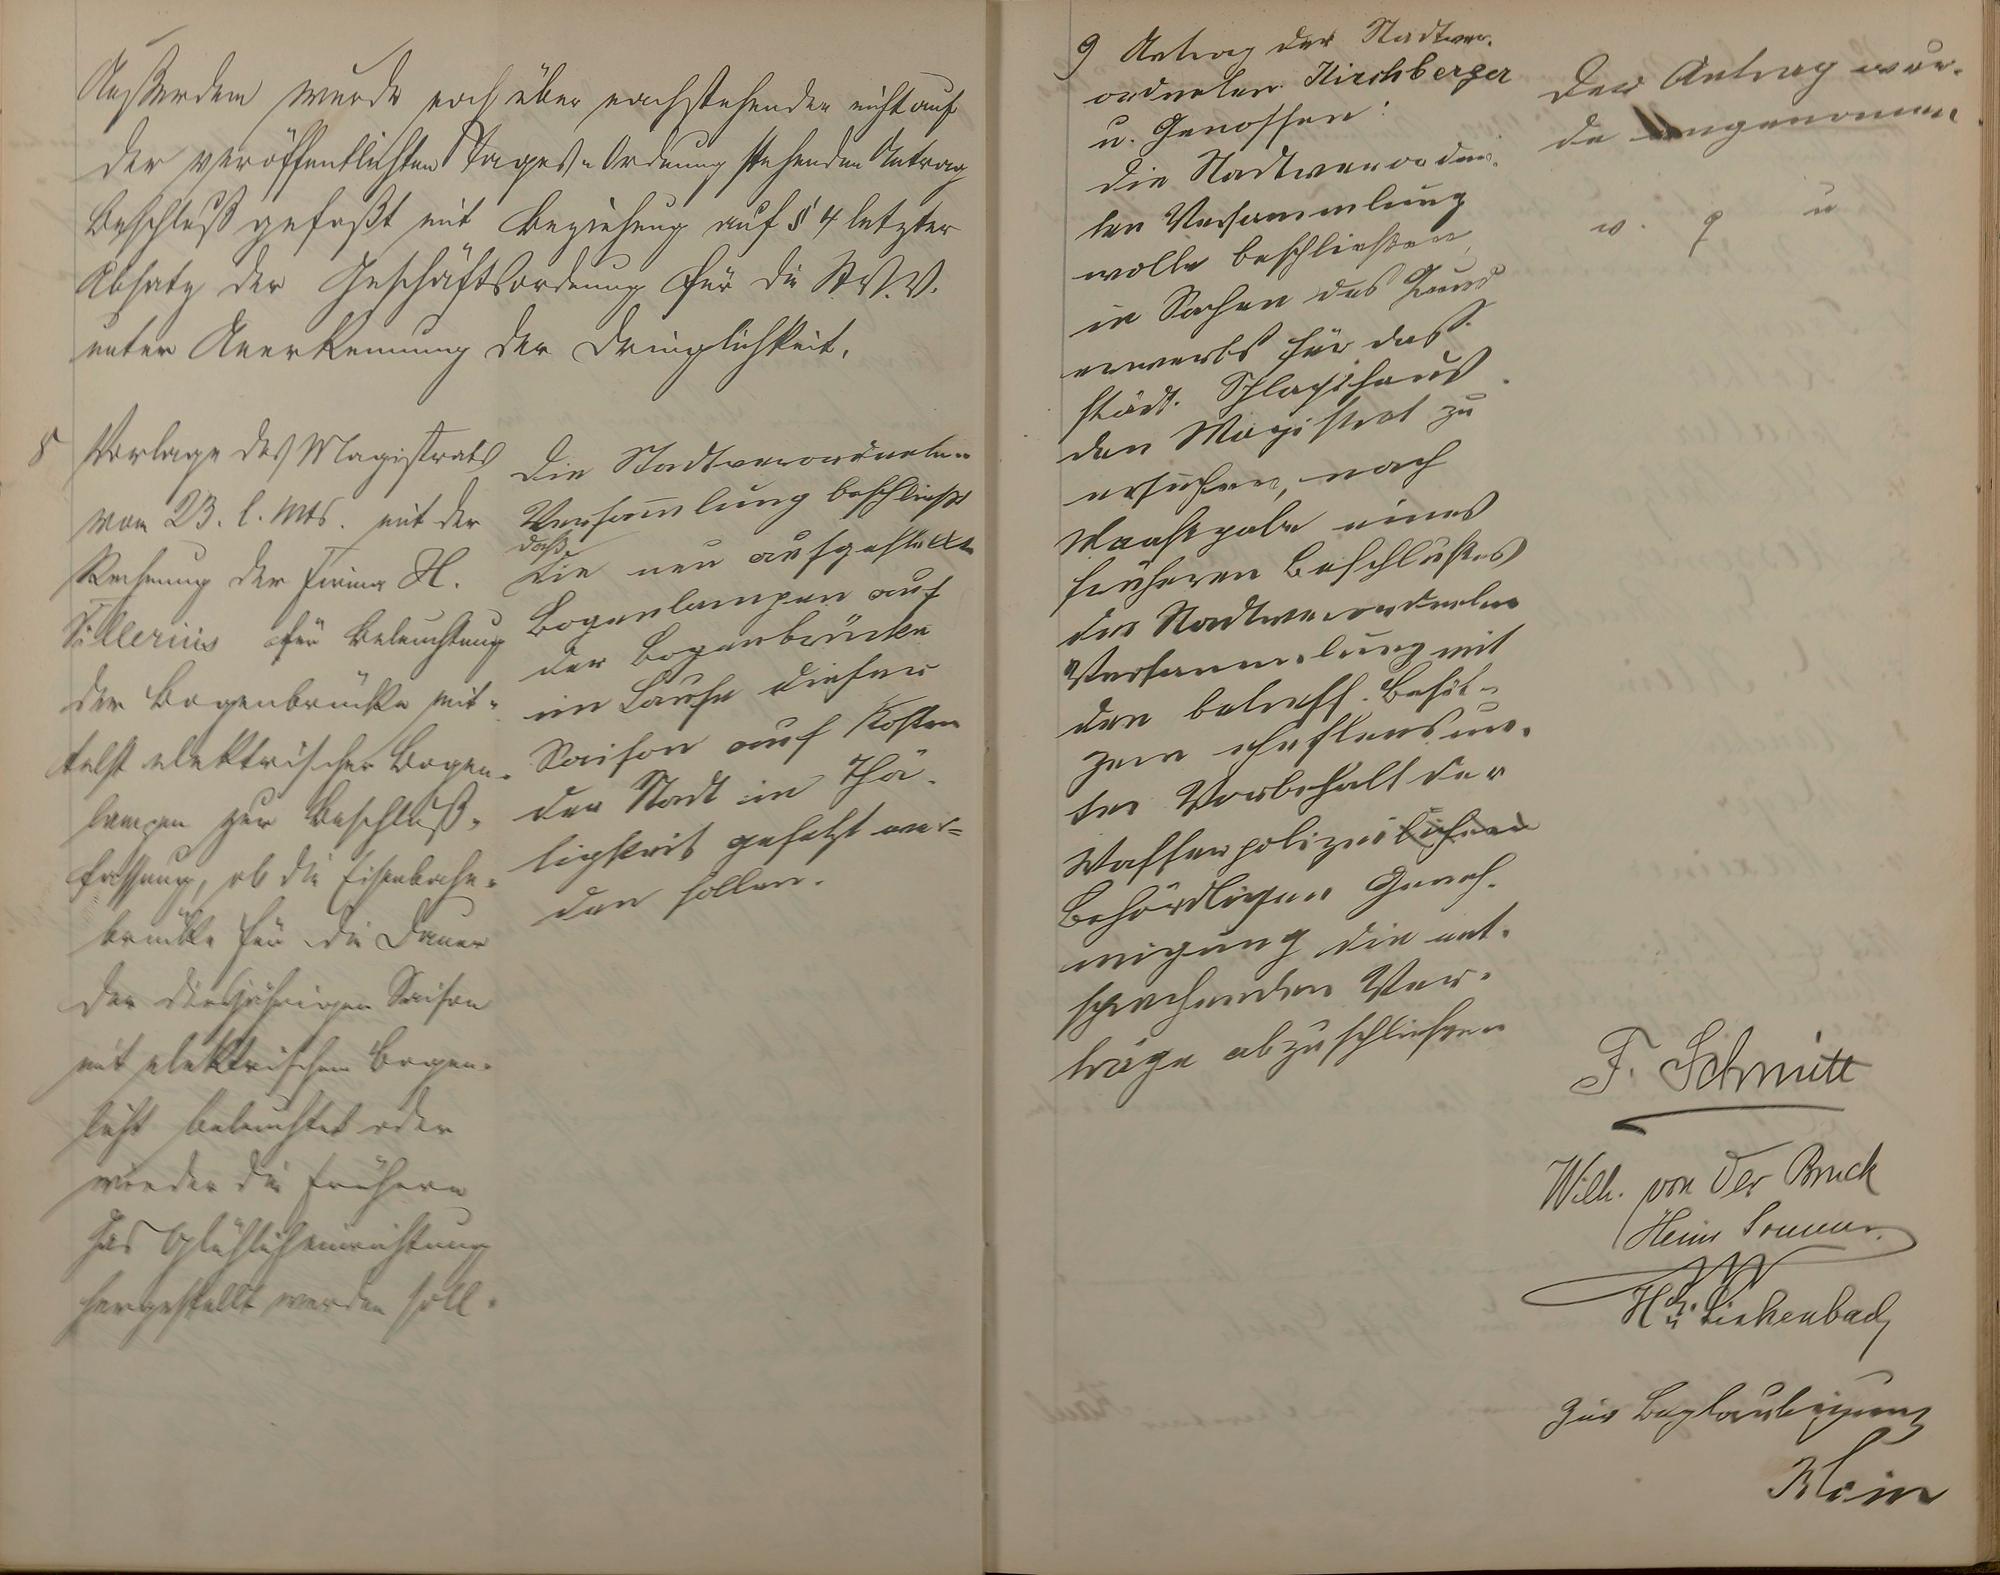 Außerdem wurde noch über nachstehenden nicht auf
der veröffentlichten Tages-Ordnung stehenden Antrag
Beschluß gefaßt mit Beziehung auf § 4 letzter
Absatz der Geschäftsordnung für die St.V.V.
unter Anerkennung der Dringlichkeit.
8 Vorlage des Magistrats
vom 23. l. Mts. mit der
Rechnung der Firma H.
für Beleuchtung
der Bogenbrücke mit-
telst elektrischer Bogen-
lampen zur Beschluß-
fassung, ob die Eisenbahn-
brücke für die Dauer
der diesjährigen Saison
mit elektrischem Bogen-
licht beleuchtet oder
wieder die frühere
Gas Glühlichteinrichtung
hergestellt werden soll.
Die Stadtverordneten-
Versammlung beschließt
daß
die neu aufgestellten
Bogenlampen auf
der Bogenbrücke
im Laufe dieser
Saison auf Kosten
der Stadt in Thä-
tigkeit gesetzt wer-
den sollen.
9 Antrag der Stadtver-
ordneten Kirschberger
u. Genossen:
Die Stadtverordne-
ten Versammlung
wolle beschließen,
in Sachen des Grund
erwerbs für das
städt. Schlachthaus
den Magistrat zu
ersuchen, nach
Maaßgabe eines
früheren Beschlußes
der Stadtverordneten
Versammlung mit
den betreff. Besit-
zern ehestens un-
ter Vorbehalt der
Wasserpolizeilichen
Behördlichen Geneh-
migung die ent-
sprechenden Ver-
träge abzuschließen
Der Antrag wur-
de angenommen
v. g. u
F. Schmitt
Wilh. von der Bruck
Heinr Sommer
Hch. Linkenbach
Zur Beglaubigung
Klein